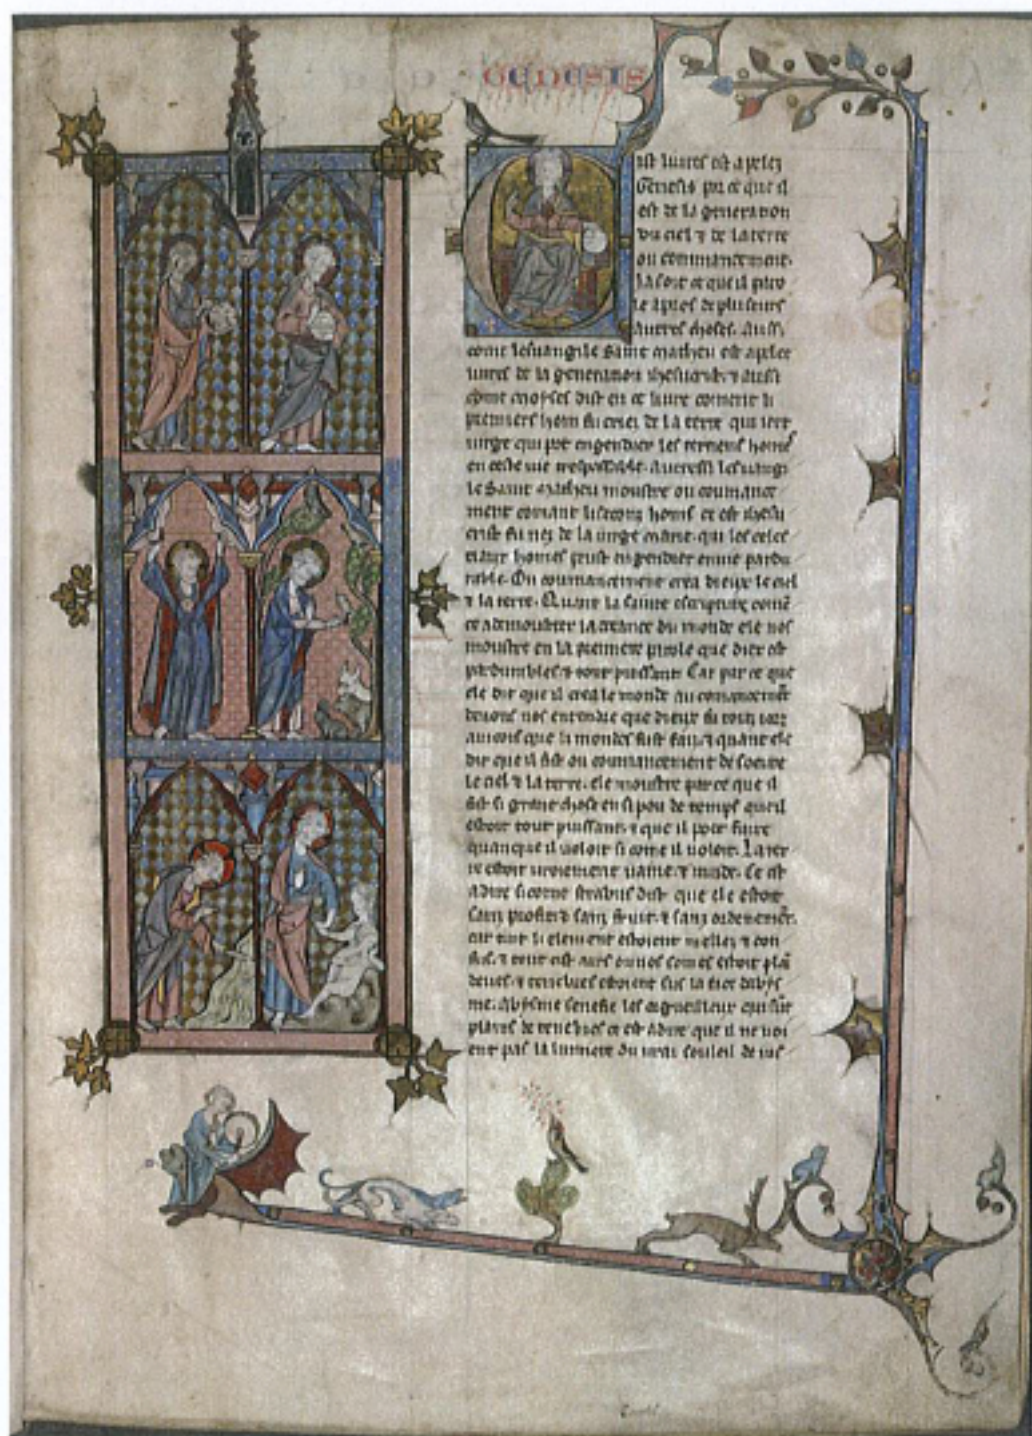 GENESIS
Cist livres est apelez
Genesis par ce que il
est de la generation
du ciel ⁊ de la terre
ou commancement.
ja soit ce que il paro
le apres de pluseurs
autres choses. Aussi
come lesuangile saint matheu est apelee
livres de la generation
dist en ce livre coment li
premiers hom fu criez de la terre qui iert
virge qui pot engendrer les terriens homes
en ceste vie
le saint matheu moustre ou coumance
ment comant li secons homs ce est ihesu
crist fu nez de la virge marie. qui les celes
tiaux homes peust engendrer en vie pardu
rable. Ou coumancement crea dieux le ciel
⁊ la terre. Quant la sainte escripture comē
ce a demoustrer la creance du monde ele nos
moustre en la premiere parole que diex est
pardurables ⁊ tout puissant. Car par ce que
ele dit que il crea le monde au
devons nos entendre que dieux fu touz iorz
aincois que li mondes fust faiz. ⁊ quant ele
dit que il fist ou coumancement de
le ciel ⁊ la terre. ele moustre par ce que il
fist si grant chose en si pou de temps que il
estoit tout puissant. ⁊ que il pot faire
quanque il voloit si come il voloit. La ter
re estoit vraiement vaine ⁊ vuide. Ce est
a dire si come strabus dist que ele estoit
sanz profit ⁊ sanz fruit. ⁊ sanz
car tuit li element estoient mellez ⁊ con
fus. ⁊ tout
⁊ tenebres estoient sus la face dabys
me. Abysme senefie les
plains de tenebres ce est a dire que il ne voi
ent pas la lumiere du vrai souleil de ius